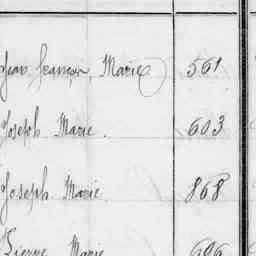 Jean François, Marie 561
Joseph Marie. 603
Joseph Marie. 868
Pierre Marie 606